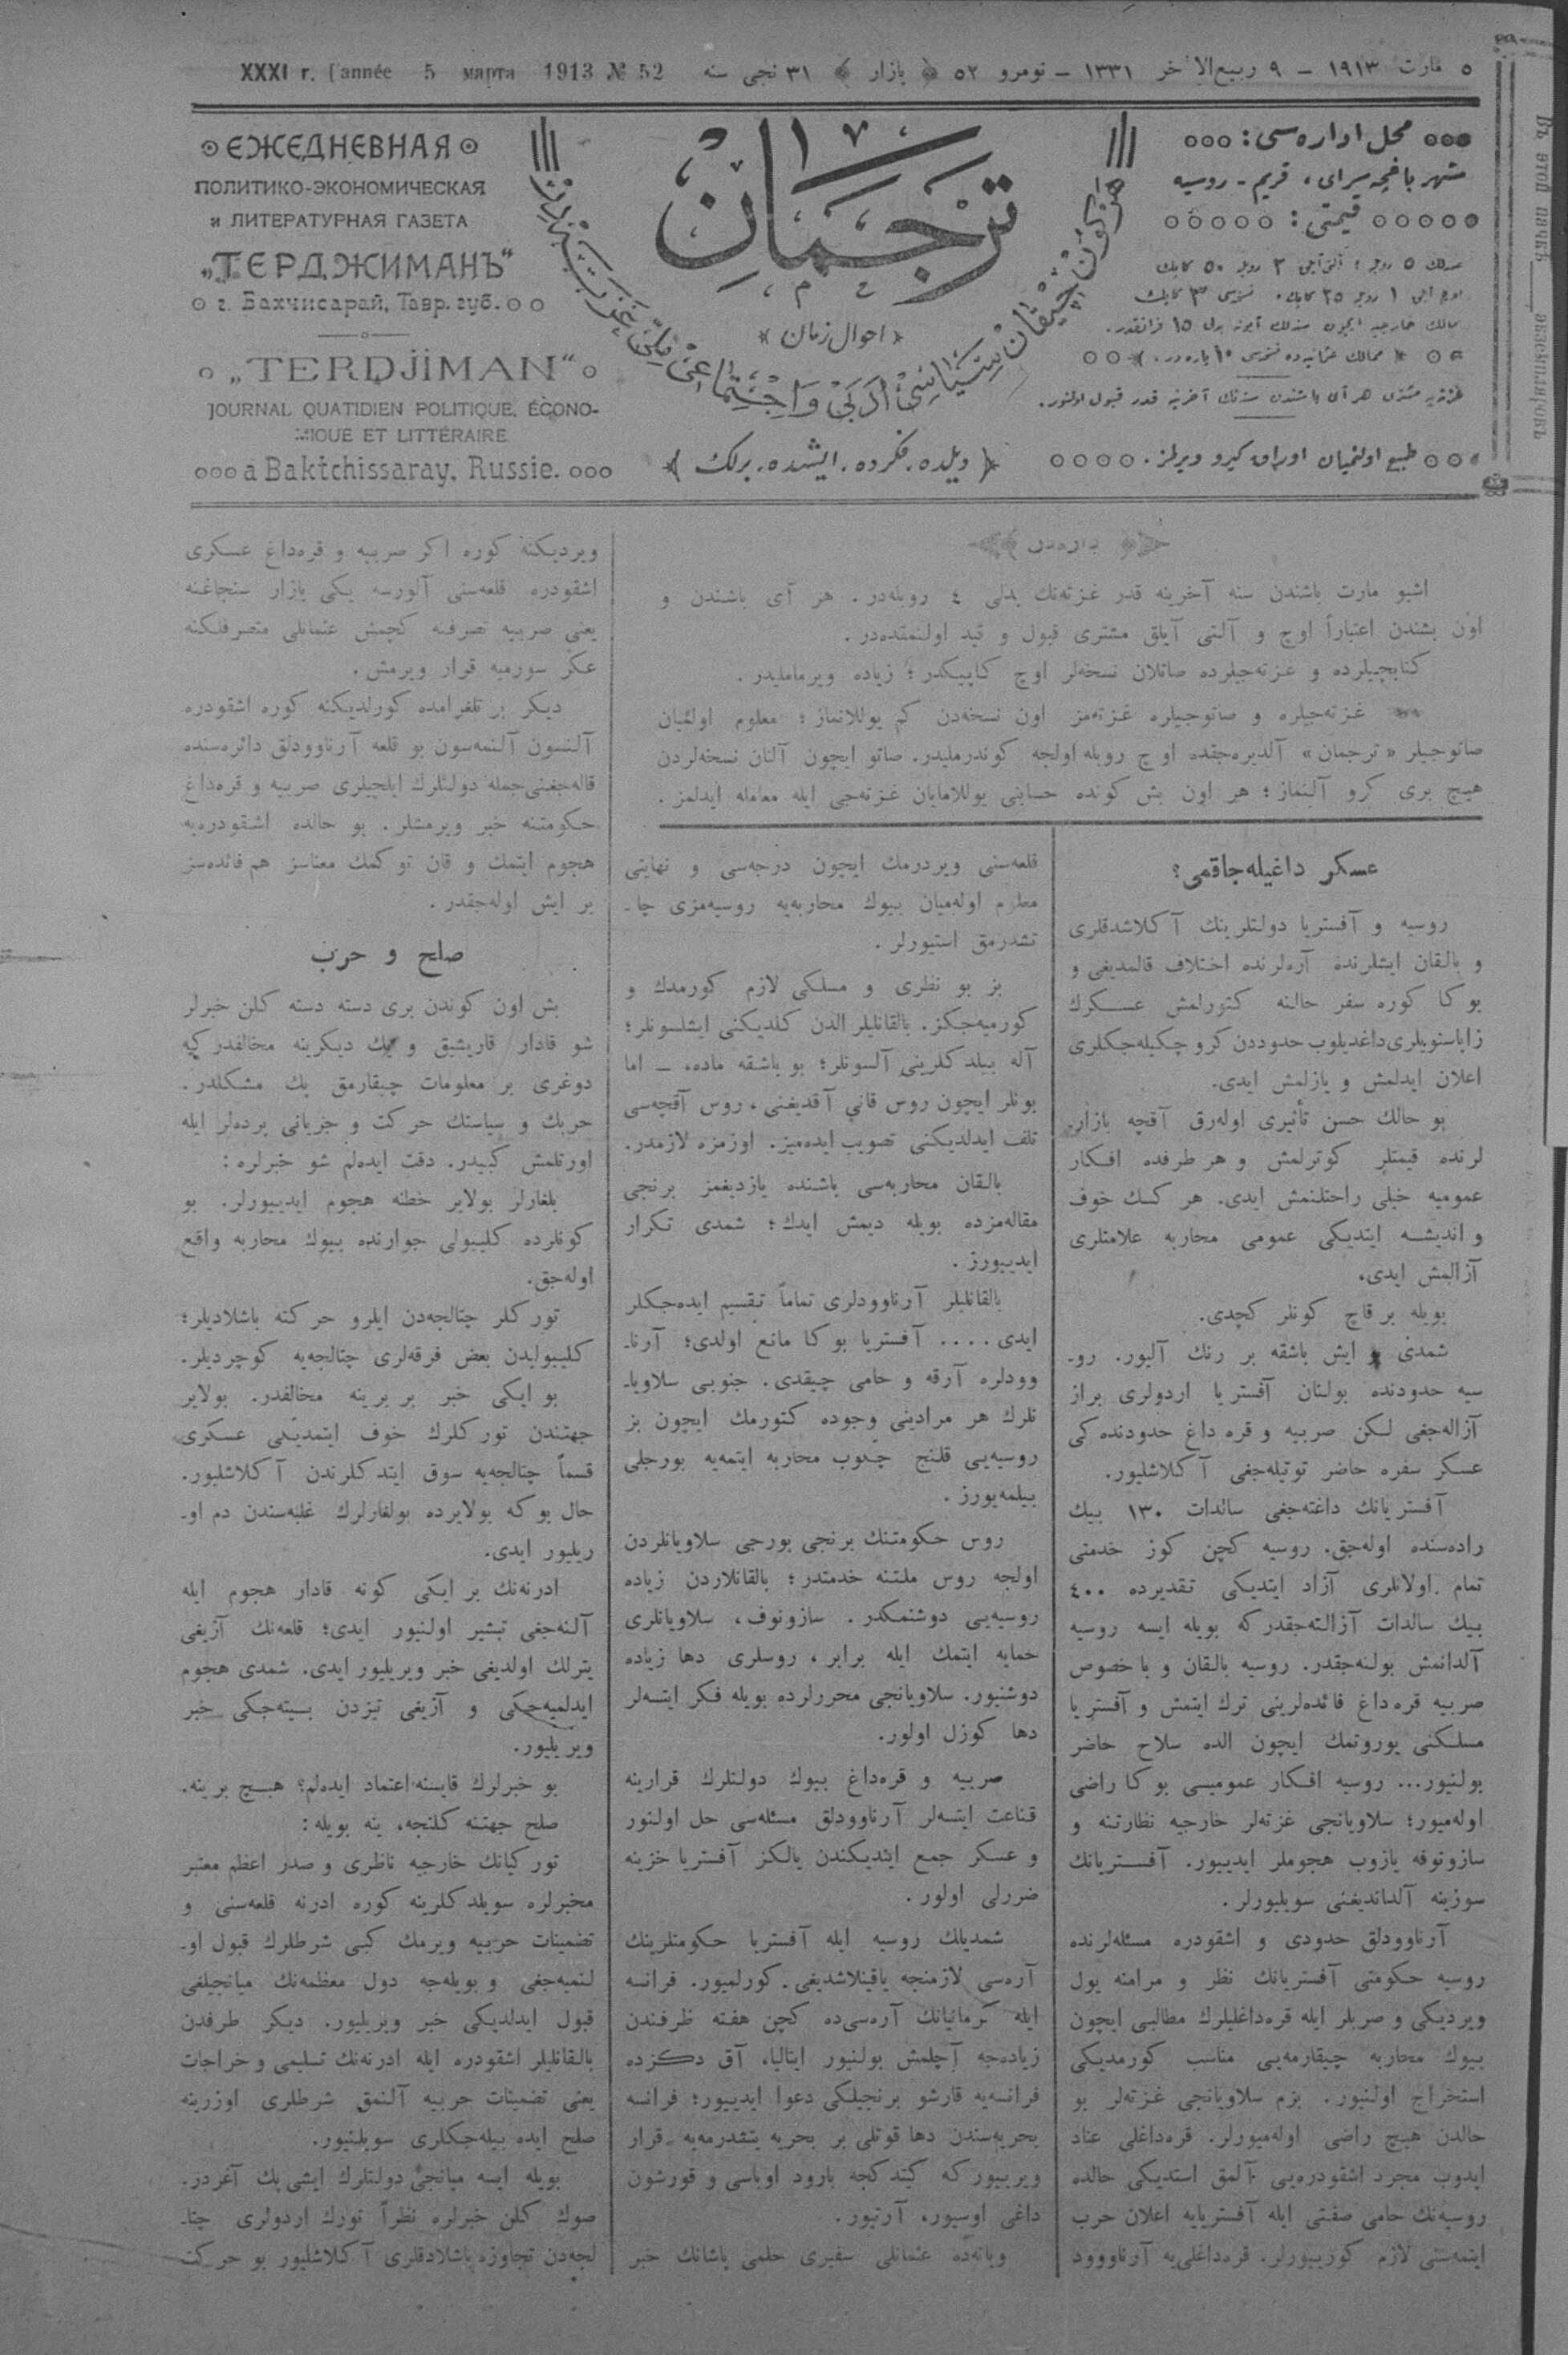 ٥ مارت ١٩١٣ – ٩ ربيع الاخر ١٣٣١ – نومرو ٥٢ ﴿ بازار ﴾ ٣١ نجی سنه XXXI г. (année 5 марта 1913 № 52
محل اداره‌سی :
شهر باغچه سرای ، قریم - روسیه
قیمتی :
سنه‌لك ٥ روبله ؛ آلتی آیلق ٣ روبله ٥٠ كاپك
اوچ آیلق ١ روبله ٢٥ كاپك . نسخه‌سی ٣ كاپك
ممالك خارجیه ایچون سنه‌لك آبونه بدلی ١٥ فرانقدر .
ممالك عثمانیه‌ده نسخه‌سی ١٠ پاره‌در .
طبع اولنمیان اوراق كیرو ویرلمز .
ترجمان
﴿ احوال زمان ﴾
هر كون چیقان سیاسی ادبی و اجتماعی ملی غزته‌در
﴿ دیلده . فكرده . ایشده . برلك ﴾
ЕЖЕДНЕВНАЯ
ПОЛИТИКО-ЭКОНОМИЧЕСКАЯ
и ЛИТЕРАТУРНАЯ ГАЗЕТА
„ТЕРДЖИМАНЪ“
г. Бахчисарай, Тавр. губ.
„TERDJIMAN“
JOURNAL QUATIDIEN POLITIQUE, ÉCONO-
MIQUE ET LITTÉRAIRE
à Baktchissaray, Russie.
Въ этой пачкѣ ____ экземпляровъ
اداره‌دن
اشبو مارت باشندن سنه آخرینه قدر غزته‌نك بدلی ٤ روبله‌در . هر آی باشندن و
اون بشندن اعتباراً اوچ و آلتی آیلق مشتری قبول و قید اولنمقده‌در .
كتابچیلرده و غزته‌جیلرده صاتلان نسخه‌لر اوچ كاپیكدر ؛ زیاده ویرماملیدر .
غزته‌جیلره و صاتوجیلره غزته‌مز اون نسخه‌دن كم یوللانماز ؛ معلوم اولمیان
صاتوجیلر « ترجمان » آلدیره‌جقده اوچ روبله اولجه كوندرملیدر . صاتو ایچون آلنان نسخه‌لردن
هیچ بری كرو آلنماز ؛ هر اون بش كونده حسابنی یوللامایان غزته‌جی ایله معامله ایدلمز .
عسكر داغیله‌جاقمی ؟
روسیه و آفستریا دولتلرینك آكلاشدقلری
و بالقان ایشلرنده آره‌لرنده اختلاف قالمدیغی و
بوكا كوره سفر حالنه كتورلمش عسكرك
زاپاسنویلری داغدیلوب حدوددن كرو چكیله‌جكلری
اعلان ایدلمش و یازلمش ایدی .
بو حالك حسن تأثیری اوله‌رق آقچه بازار-
لرنده قیمتلر كوترلمش و هر طرفده افكار
عمومیه خیلی راحتلنمش ایدی . هر كسك خوف
و اندیشه ایتدیكی عمومی محاربه علامتلری
آزالمش ایدی .
بویله بر قاچ كونلر كچدی .
شمدی ایش باشقه بر رنك آلیور . رو-
سیه حدودنده بولنان آفستریا اردولری براز
آزاله‌جغی لكن صربیه و قره داغ حدودنده كی
عسكر سفره حاضر توتیله‌جغی آكلاشلیور .
آفستریانك داغته‌جغی سالدات ١٣٠ بیك
راده‌سنده اوله‌جق . روسیه كچن كوز خدمتی
تمام اولانلری آزاد ایتدیكی تقدیرده ٤٠٠
بیك سالدات آزالته‌جقدر كه بویله ایسه روسیه
آلدانمش بولنه‌جقدر . روسیه بالقان و باخصوص
صربیه قره داغ فائده‌لرینی ترك ایتمش و آفستریا
مسلكنی یوروتمك ایچون الده سلاح حاضر
بولنیور ... روسیه افكار عمومیسی بوكا راضی
اوله‌میور ؛ سلاویانجی غزته‌لر خارجیه نظارتنه و
سازونوفه یازوب هجوملر ایدییور . آفستریانك
سوزینه آلداندیغنی سویلیورلر .
آرناوودلق حدودی و اشقودره مسئله‌لرنده
روسیه حكومتی آفستریانك نظر و مرامنه یول
ویردیكی و صربلر ایله قره‌داغلیلرك مطالبی ایچون
بیوك محاربه چیقارمه‌یی مناسب كورمدیكی
استخراج اولنیور . بزم سلاویانجی غزته‌لر بو
حالدن هیچ راضی اوله‌میورلر . قره‌داغلی عناد
ایدوب مجرد اشقودره‌یی آلمق استدیكی حالده
روسیه‌نك حامی صفتی ایله آفستریایه اعلان حرب
ایتمه‌سنی لازم كورییورلر . قره‌داغلی‌یه آرناوود
قلعه‌سنی ویردرمك ایچون درجه‌سی و نهایتی
معلوم اوله‌میان بیوك محاربه‌یه روسیه‌مزی چا-
تشدرمق استیورلر .
بز بو نظری و مسلكی لازم كورمدك و
كورمیه‌جكز . بالقانلیلر الدن كلدیكنی ایشلسونلر ؛
آله بیلدكلرینی آلسونلر ؛ بو باشقه ماده . — اما
بونلر ایچون روس قانی آقدیغنی ، روس آقچه‌سی
تلف ایدلدیكنی تصویب ایده‌میز . اوزمزه لازمدر .
بالقان محاربه‌سی باشنده یازدیغمز برنجی
مقاله‌مزده بویله دیمش ایدك ؛ شمدی تكرار
ایدییورز .
بالقانلیلر آرناوودلری تماماً تقسیم ایده‌جكلر
ایدی .... آفستریا بوكا مانع اولدی ؛ آرنا-
وودلره آرقه و حامی چیقدی . جنوبی سلاویا-
نلرك هر مرادینی وجوده كتورمك ایچون بز
روسیه‌یی قلنج چكوب محاربه ایتمه‌یه بورجلی
بیلمه‌یورز .
روس حكومتنك برنجی بورجی سلاویانلردن
اولجه روس ملتنه خدمتدر ؛ بالقانلاردن زیاده
روسیه‌یی دوشنمكدر . سازونوف ، سلاویانلری
حمایه ایتمك ایله برابر ، روسلری دها زیاده
دوشنیور . سلاویانجی محررلرده بویله فكر ایتسه‌لر
دها كوزل اولور .
صربیه و قره‌داغ بیوك دولتلرك قرارینه
قناعت ایتسه‌لر آرناوودلق مسئله‌سی حل اولنور
و عسكر جمع ایتدیكندن یالكز آفستریا خزینه
ضررلی اولور .
شمدیلك روسیه ایله آفستریا حكومتلرینك
آره‌سی لازمنجه یاقینلاشدیغی كورلمیور . فرانسه
ایله كرمانیانك آره‌سی‌ده كچن هفته ظرفندن
زیاده‌جه آچلمش بولنیور ایتالیا ، آق دكزده
فرانسه‌یه قارشو برنجیلكی دعوا ایدییور ؛ فرانسه
بحریه‌سندن دها قوتلی بر بحریه یتشدرمه‌یه قرار
ویرییور كه كیتدكجه بارود اوباسی و قورشون
داغی اوسیور ، آرتیور .
ویانه‌ده عثمانلی سفیری حلمی پاشانك خبر
ویردیكنه كوره اكر صربیه و قره‌داغ عسكری
اشقودره قلعه‌سنی آلورسه یكی بازار سنجاغنه
یعنی صربیه تصرفنه كچمش عثمانلی متصرفلكنه
عكر سورمیه قرار ویرمش .
دیكر بر تلغرامده كورلدیكنه كوره اشقودره
آلنسون آلنمه‌سون بو قلعه آرناوودلق دائره‌سنده
قاله‌جغنی جمله دولتلرك ایلچیلری صربیه و قره‌داغ
حكومتنه خبر ویرمشلر . بو حالده اشقودره‌یه
هجوم ایتمك و قان توكمك معناسز هم فائده‌سز
بر ایش اوله‌جقدر .
صلح و حرب
بش اون كوندن بری دسته دسته كلن خبرلر
شو قادار قاریشیق و یك دیكرینه مخالفدر كه
دوغری بر معلومات چیقارمق پك مشكلدر .
حربك و سیاستك حركت و جریانی پرده‌لر ایله
اورتلمش كبیدر . دقت ایده‌لم شو خبرلره :
بلغارلر بولایر خطنه هجوم ایدییورلر . بو
كونلرده كلیبولی جوارنده بیوك محاربه واقع
اوله‌جق .
توركلر چتالجه‌دن ایلرو حركته باشلادیلر ؛
كلیبولیدن بعض فرقه‌لری چتالجه‌یه كوچردیلر .
بو ایكی خبر بر برینه مخالفدر . بولایر
جهتندن توركلرك خوف ایتمدیكی عسكری
قسماً چتالجه‌یه سوق ایتدكلرندن آكلاشلیور .
حال بو كه بولایرده بولغارلرك غلبه‌سندن دم او-
ریلیور ایدی .
ادرنه‌نك بر ایكی كونه قادار هجوم ایله
آلنه‌جغی تبشیر اولنیور ایدی ؛ قلعه‌نك آزیغی
یترلك اولدیغی خبر ویریلیور ایدی . شمدی هجوم
ایدلمیه‌جكی و آزیغی تیزدن بیته‌جكی خبر
ویریلیور .
بو خبرلرك قایسنه اعتماد ایده‌لم ؟ هیچ برینه .
صلح جهتنه كلنجه ، ینه بویله :
توركیانك خارجیه ناظری و صدر اعظم معتبر
مخبرلره سویلدكلرینه كوره ادرنه قلعه‌سنی و
تضمینات حربیه ویرمك كبی شرطلرك قبول او-
لنمیه‌جغی و بویله‌جه دول معظمه‌نك میانجیلغی
قبول ایدلدیكی خبر ویریلیور . دیكر طرفدن
بالقانلیلر اشقودره ایله ادرنه‌نك تسلیمی و خراجات
یعنی تضمینات حربیه آلنمق شرطلری اوزرینه
صلح ایده بیله‌جكلری سویلنیور .
بویله ایسه میانجی دولتلرك ایشی پك آغردر .
صوك كلن خبرلره نظراً تورك اردولری چتا-
لجه‌دن تجاوزه باشلادقلری آكلاشلیور بو حركت